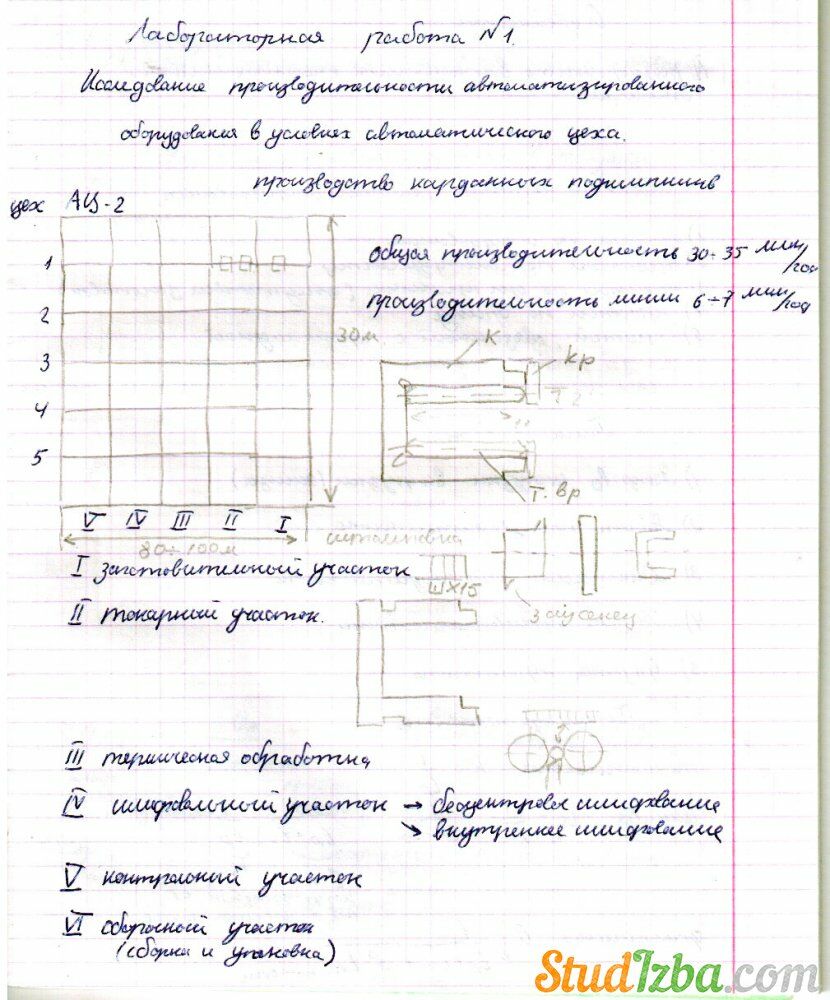 Лабораторная работа №1.
Исследование производительности автоматизированного
оборудования в условиях автоматического цеха.
производство карданных подшипников
цех АЦ-2
общая производительность 30÷35 млн/год
производительность линии 6÷7 млн/год
1
2
3
4
5
30м
К
кр
Т. вр
V IV III II I
80÷100м
штамповка
I заготовительный участок
ШХ15
заусенец
II токарный участок.
III термическая обработка
IV шлифовальный участок → бесцентровое шлифование
↘ внутреннее шлифование
V контрольный участок
VI сборочный участок
(сборка и упаковка)
StudIzba.com